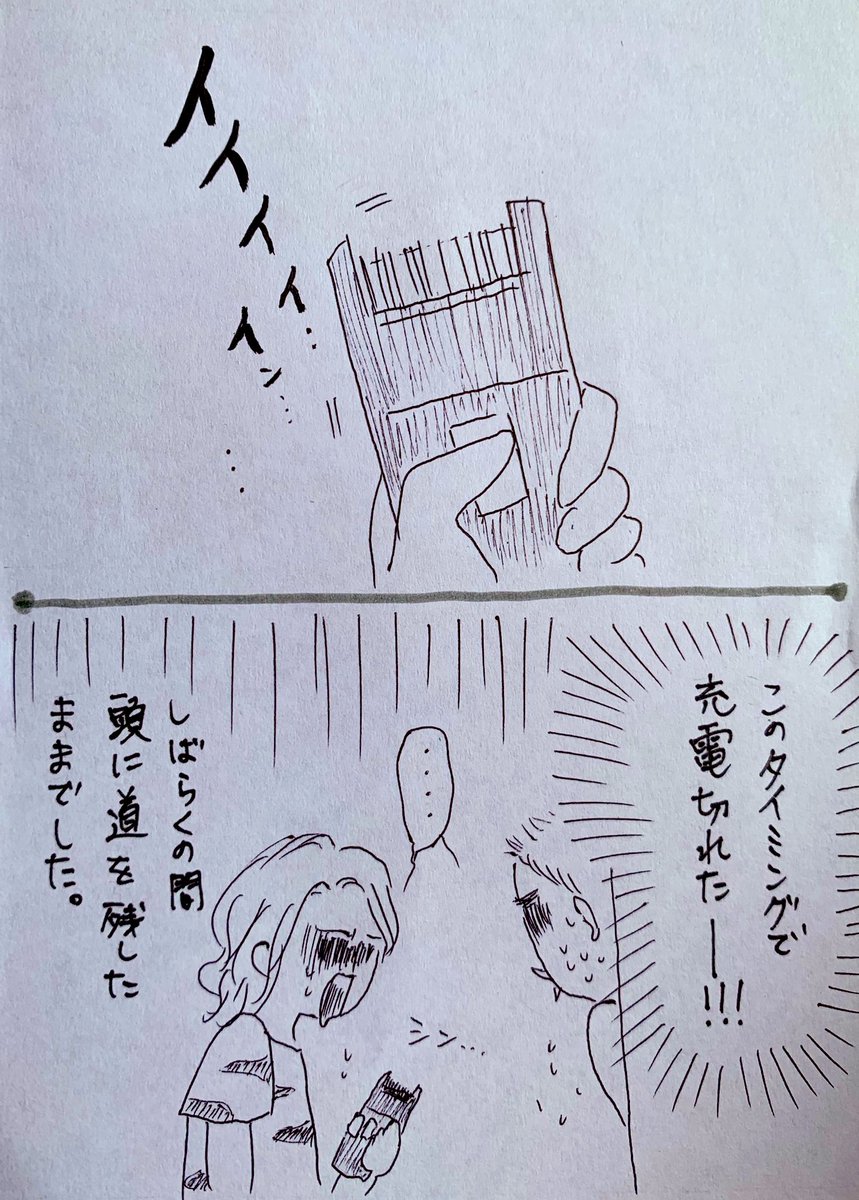 イイイイイン……
…
このタイミングで
充電切れたー!!!
……
しばらくの間
頭に道を残した
ままでした。